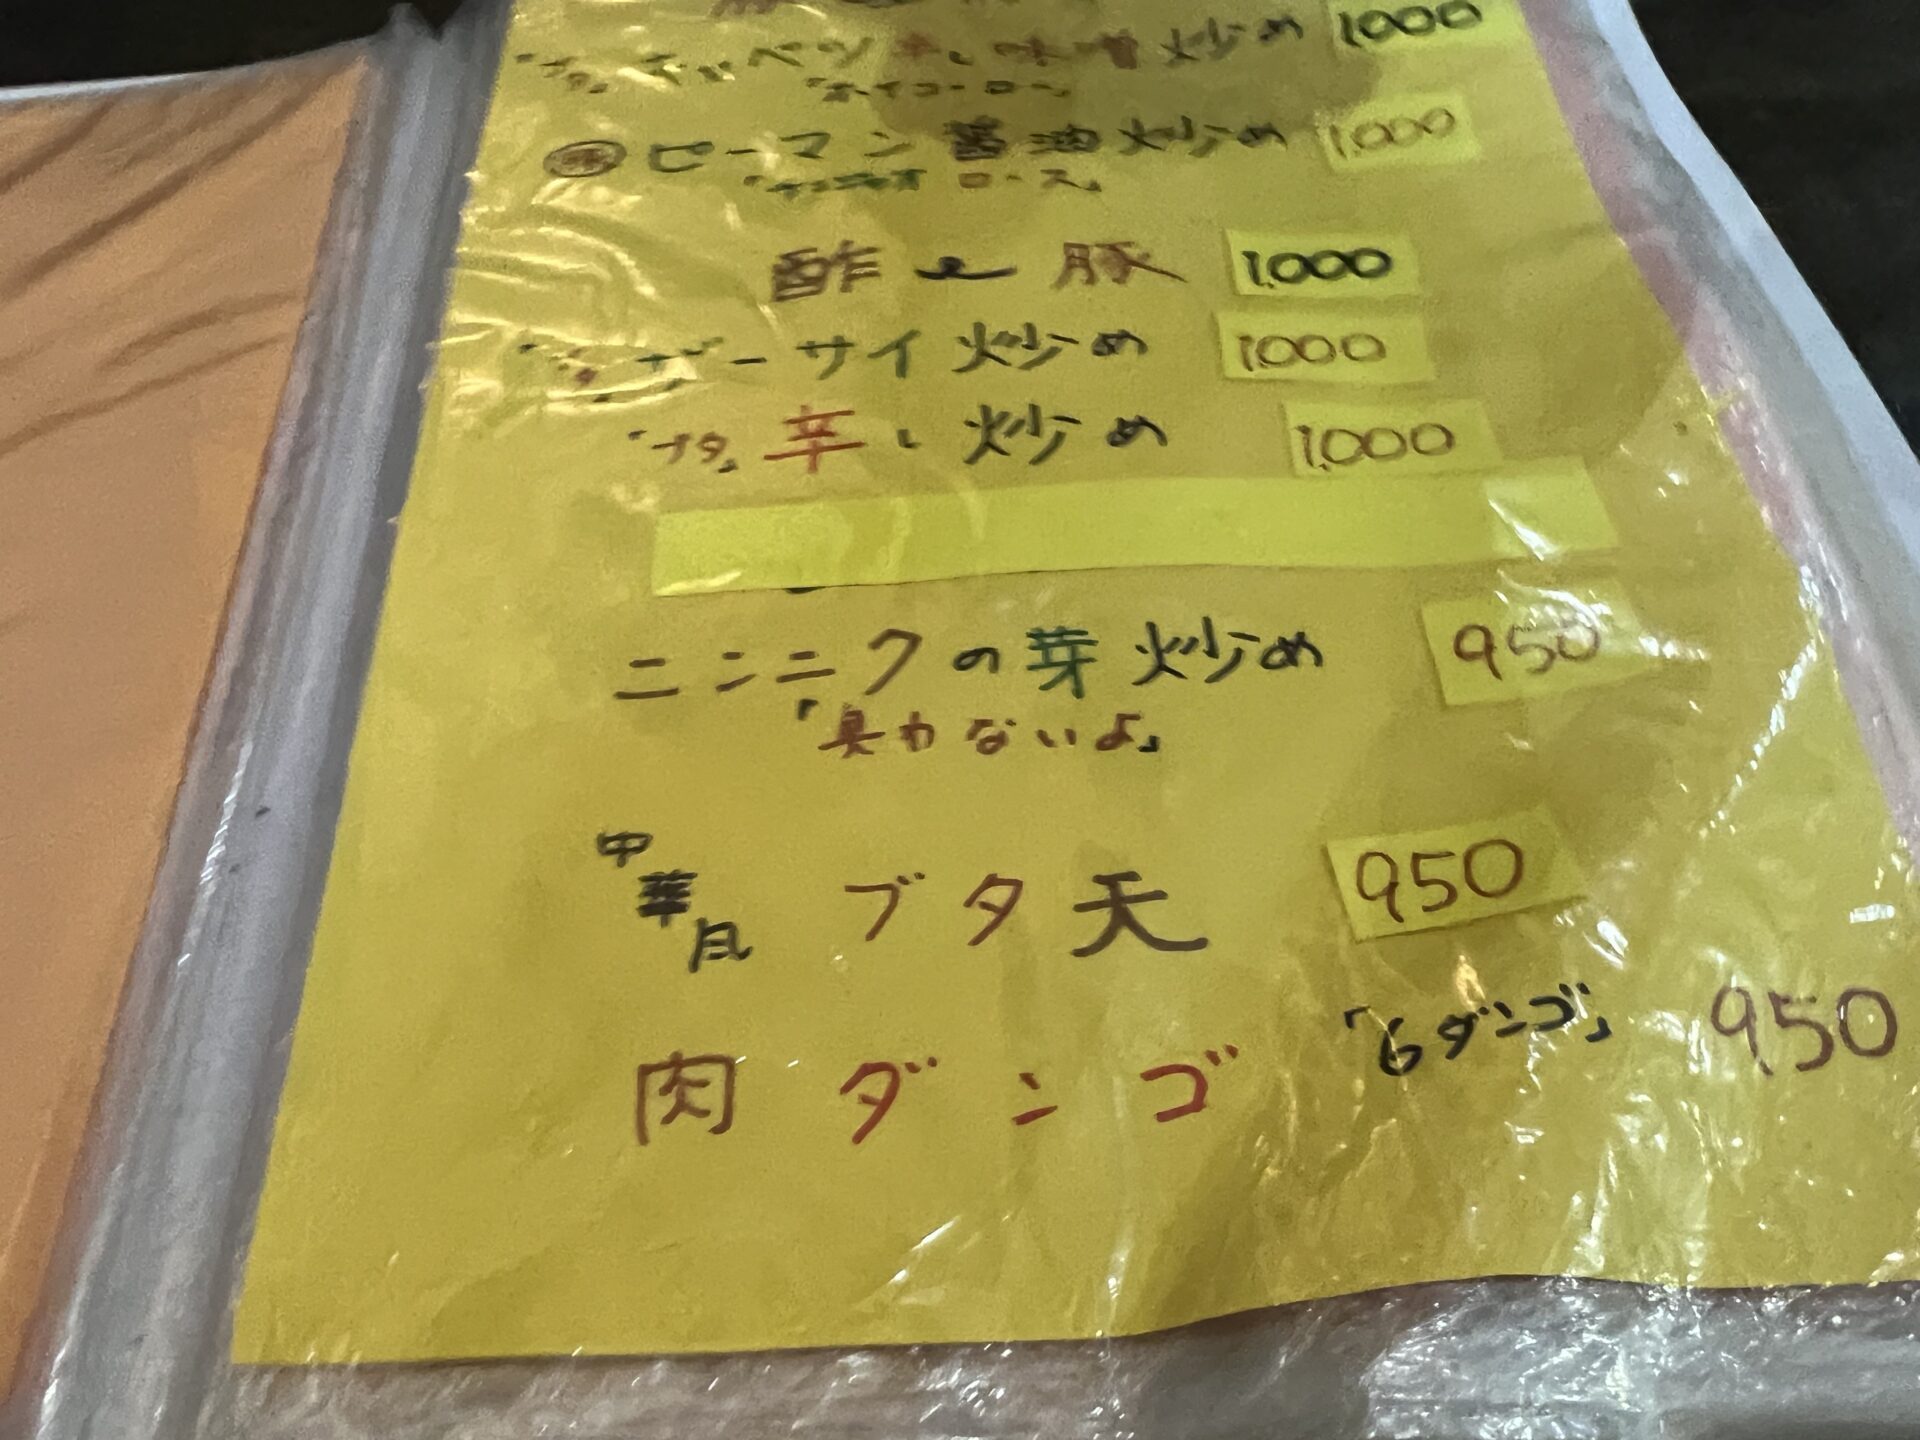 「ブタ」キャベツ辛し味噌炒め 1,000
「ホイコーロー」
ピーマン醤油炒め 1,000
「チンジャオロース」
酢し豚 1,000
「ブタ」ザーサイ炒め 1,000
「ブタ」辛し炒め 1,000
ニンニクの芽炒め 950
「臭わないよ」
中華風 ブタ天 950
肉ダンゴ 「6ダンゴ」 950